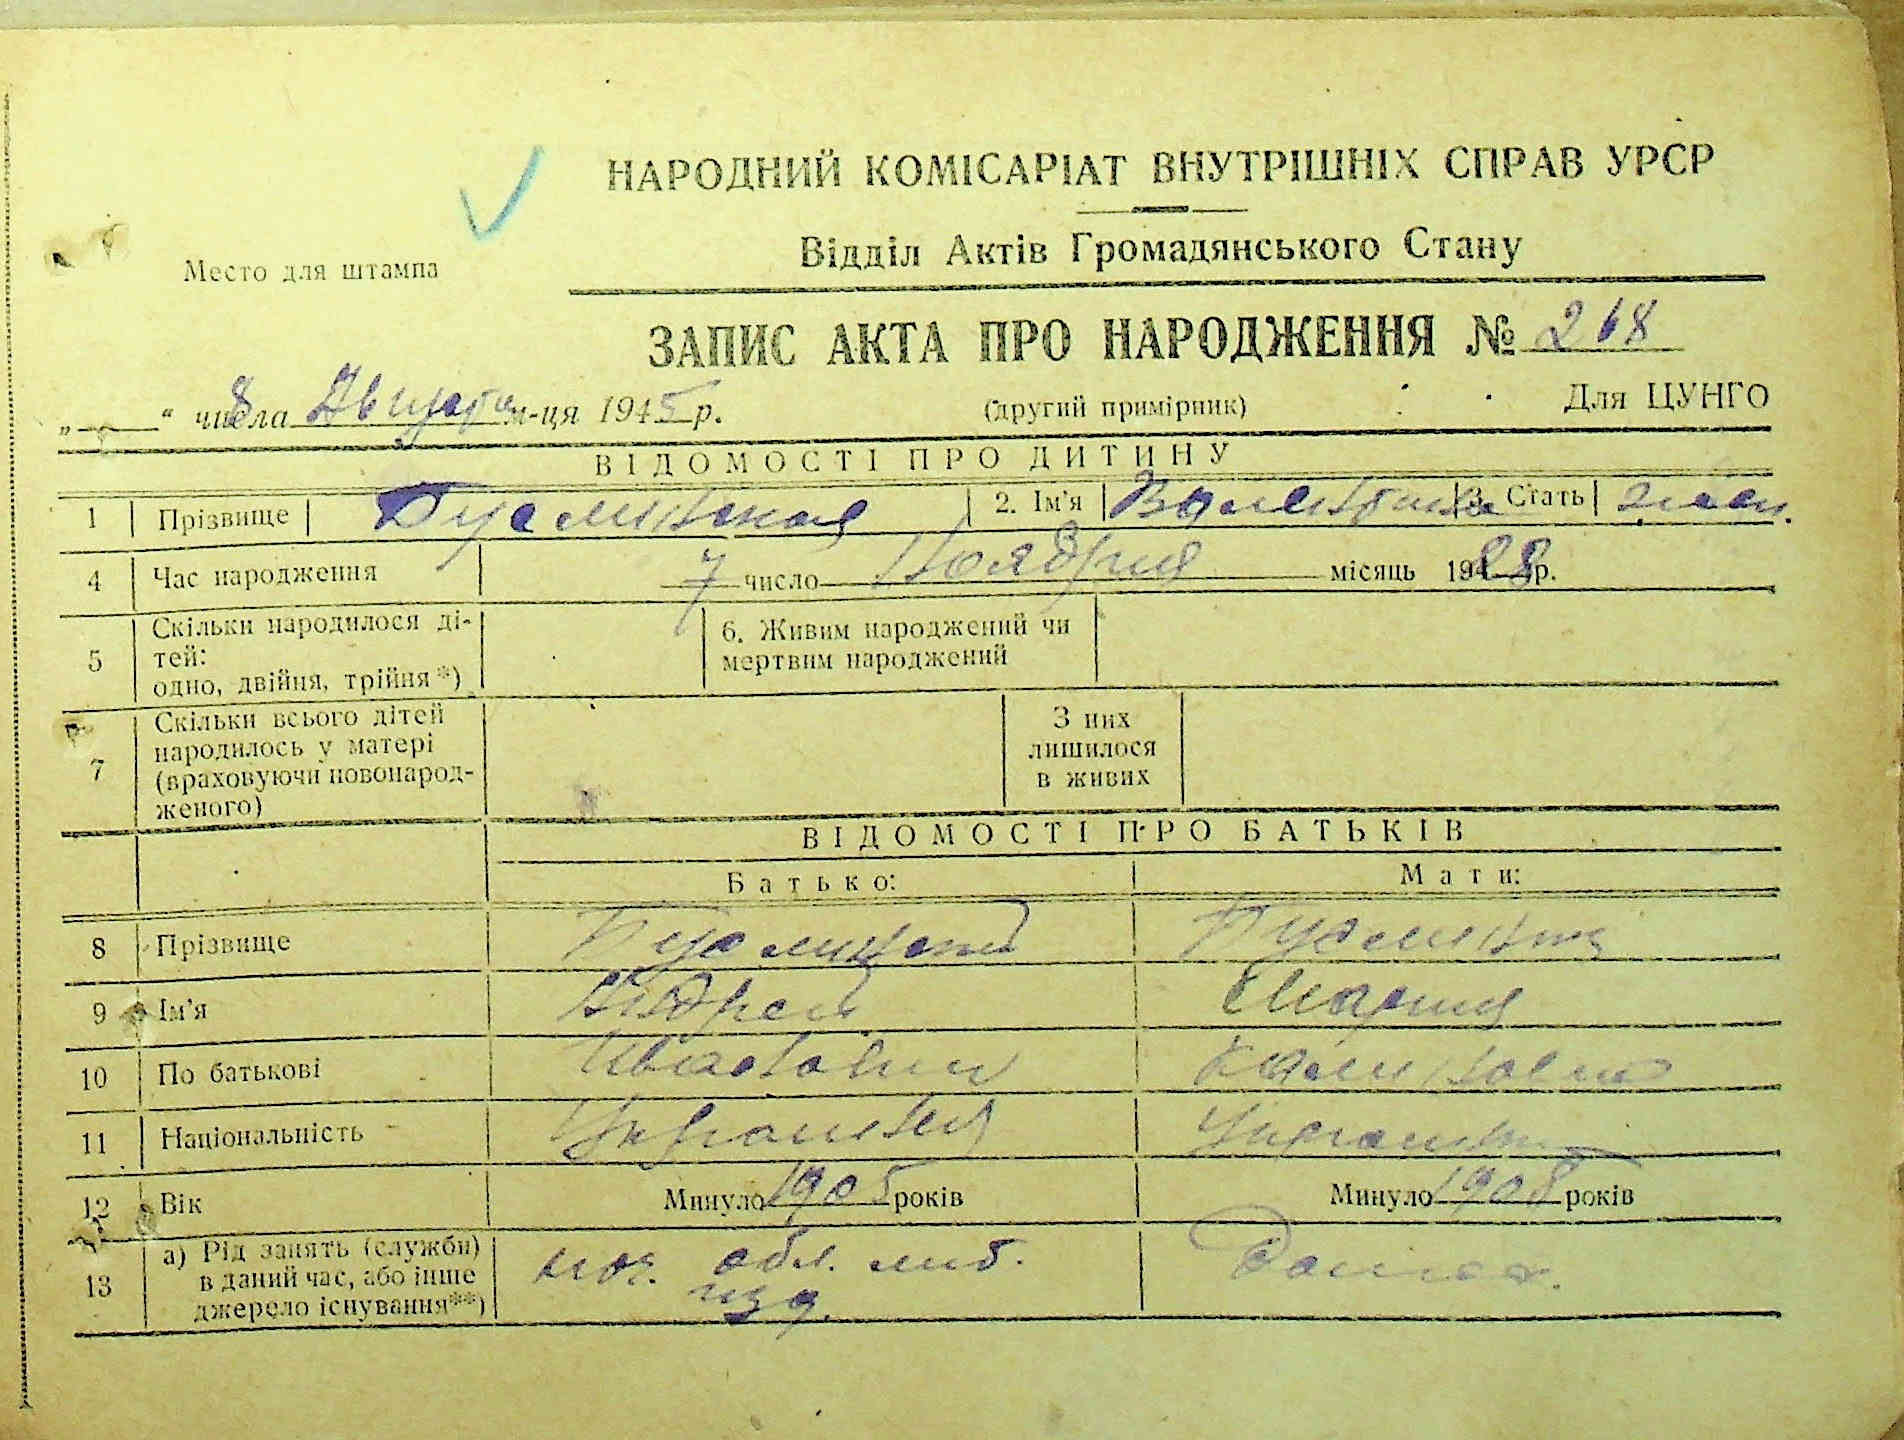 НАРОДНИЙ КОМІСАРІАТ ВНУТРІШНІХ СПРАВ УРСР
Відділ Актів Громадянського Стану
Место для штампа
ЗАПИС АКТА ПРО НАРОДЖЕННЯ № 268
„ “ 8 числа Августа м-ця 1945 р. (другий примірник) Для ЦУНГО
ВІДОМОСТІ ПРО ДИТИНУ
1 Прізвище 2. Ім'я Валентина 3. Стать жен.
4 Час народження 7 число Ноября місяць 1928 р.
5 Скільки народилося ді-
тей:
одно, двійня, трійня *)
6. Живим народжений чи
мертвим народжений
7 Скільки всього дітей
народилось у матері
(враховуючи новонарод-
женого)
З них
лишилося
в живих
ВІДОМОСТІ ПРО БАТЬКІВ
Батько: Мати:
8 Прізвище
9 Ім'я Андрей Мария
10 По батькові
11 Національність Украинец Украинка
12 Вік Минуло 1905 років Минуло 1908 років
13 а) Рід занять (служби)
в даний час, або інше
джерело існування **)
обл. изд. Домхоз.